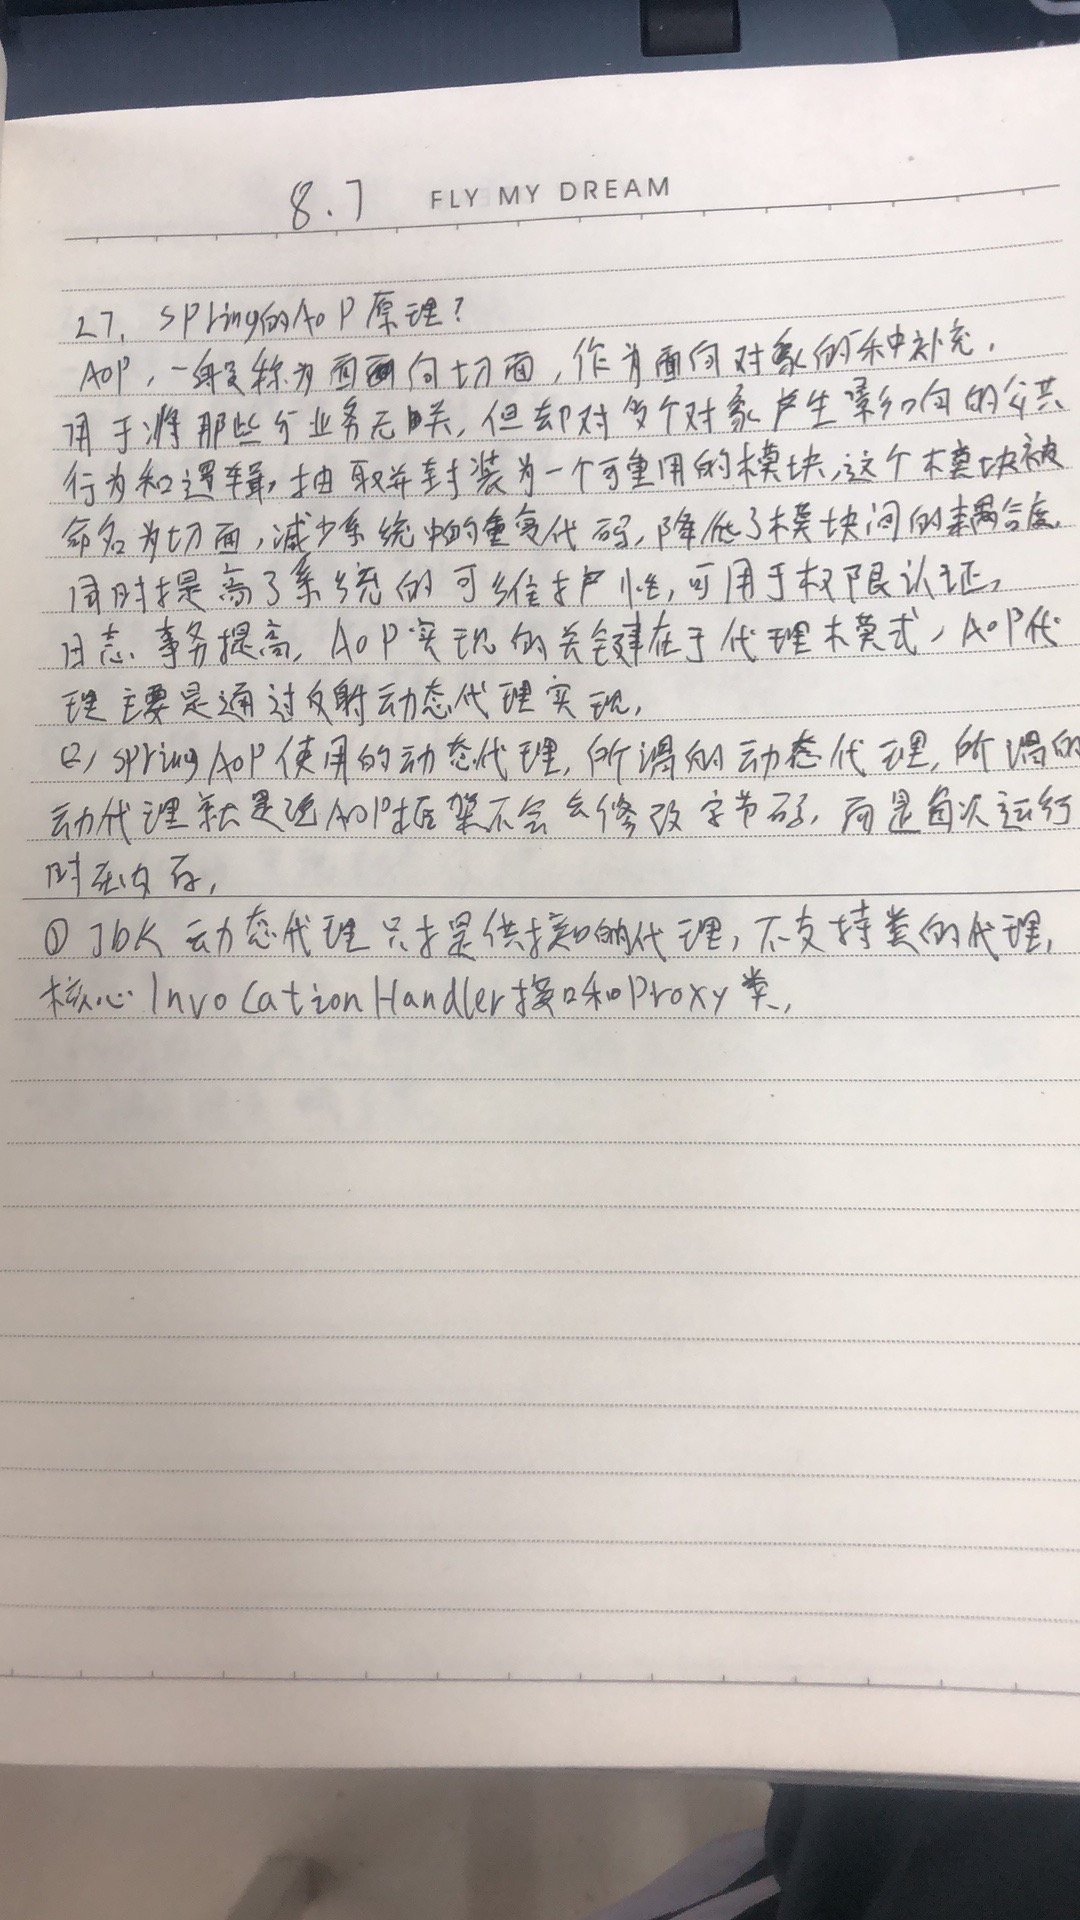 8.7 FLY MY DREAM
27. Spring的AOP原理?
AOP,一般称为面向切面,作为面向对象的一种补充.
用于将那些与业务无关,但却对多个对象产生影响的公共
行为和逻辑,抽取并封装为一个可重用的模块,这个模块被
命名为切面,减少系统中的重复代码,降低了模块间的耦合度.
同时提高了系统的可维护性,可用于权限认证,
日志、事务提高,AOP实现的关键在于代理模式,AOP代
理主要是通过反射动态代理实现,
Spring AOP使用的动态代理,所谓的动态代理,所谓的
动代理就是说AOP框架不会去修改字节码,而是每次运行
时在内存,
① JDK 动态代理只提供接口的代理,不支持类的代理,
核心InvocationHandler接口和Proxy类,